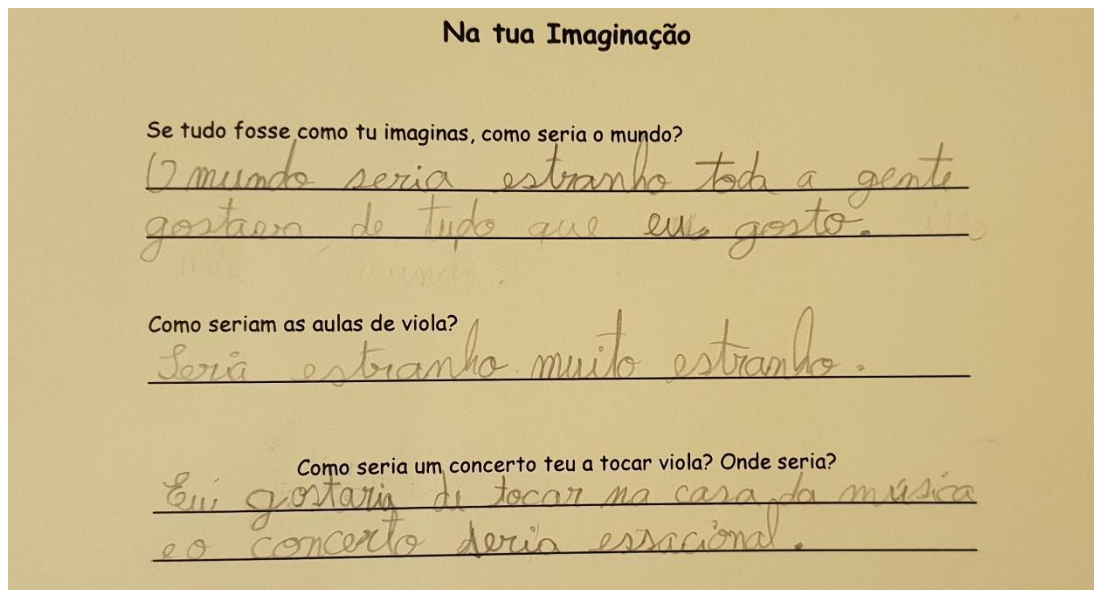 Na tua Imaginação
Se tudo fosse como tu imaginas, como seria o mundo?
O mundo seria estranho toda a gente
de tudo que eu gosto.
mundo.
Como seriam as aulas de viola?
Seria estranho muito estranho.
Como seria um concerto teu a tocar viola? Onde seria?
Eu gostaria de tocar na casa da música
e o concerto deria essacional.